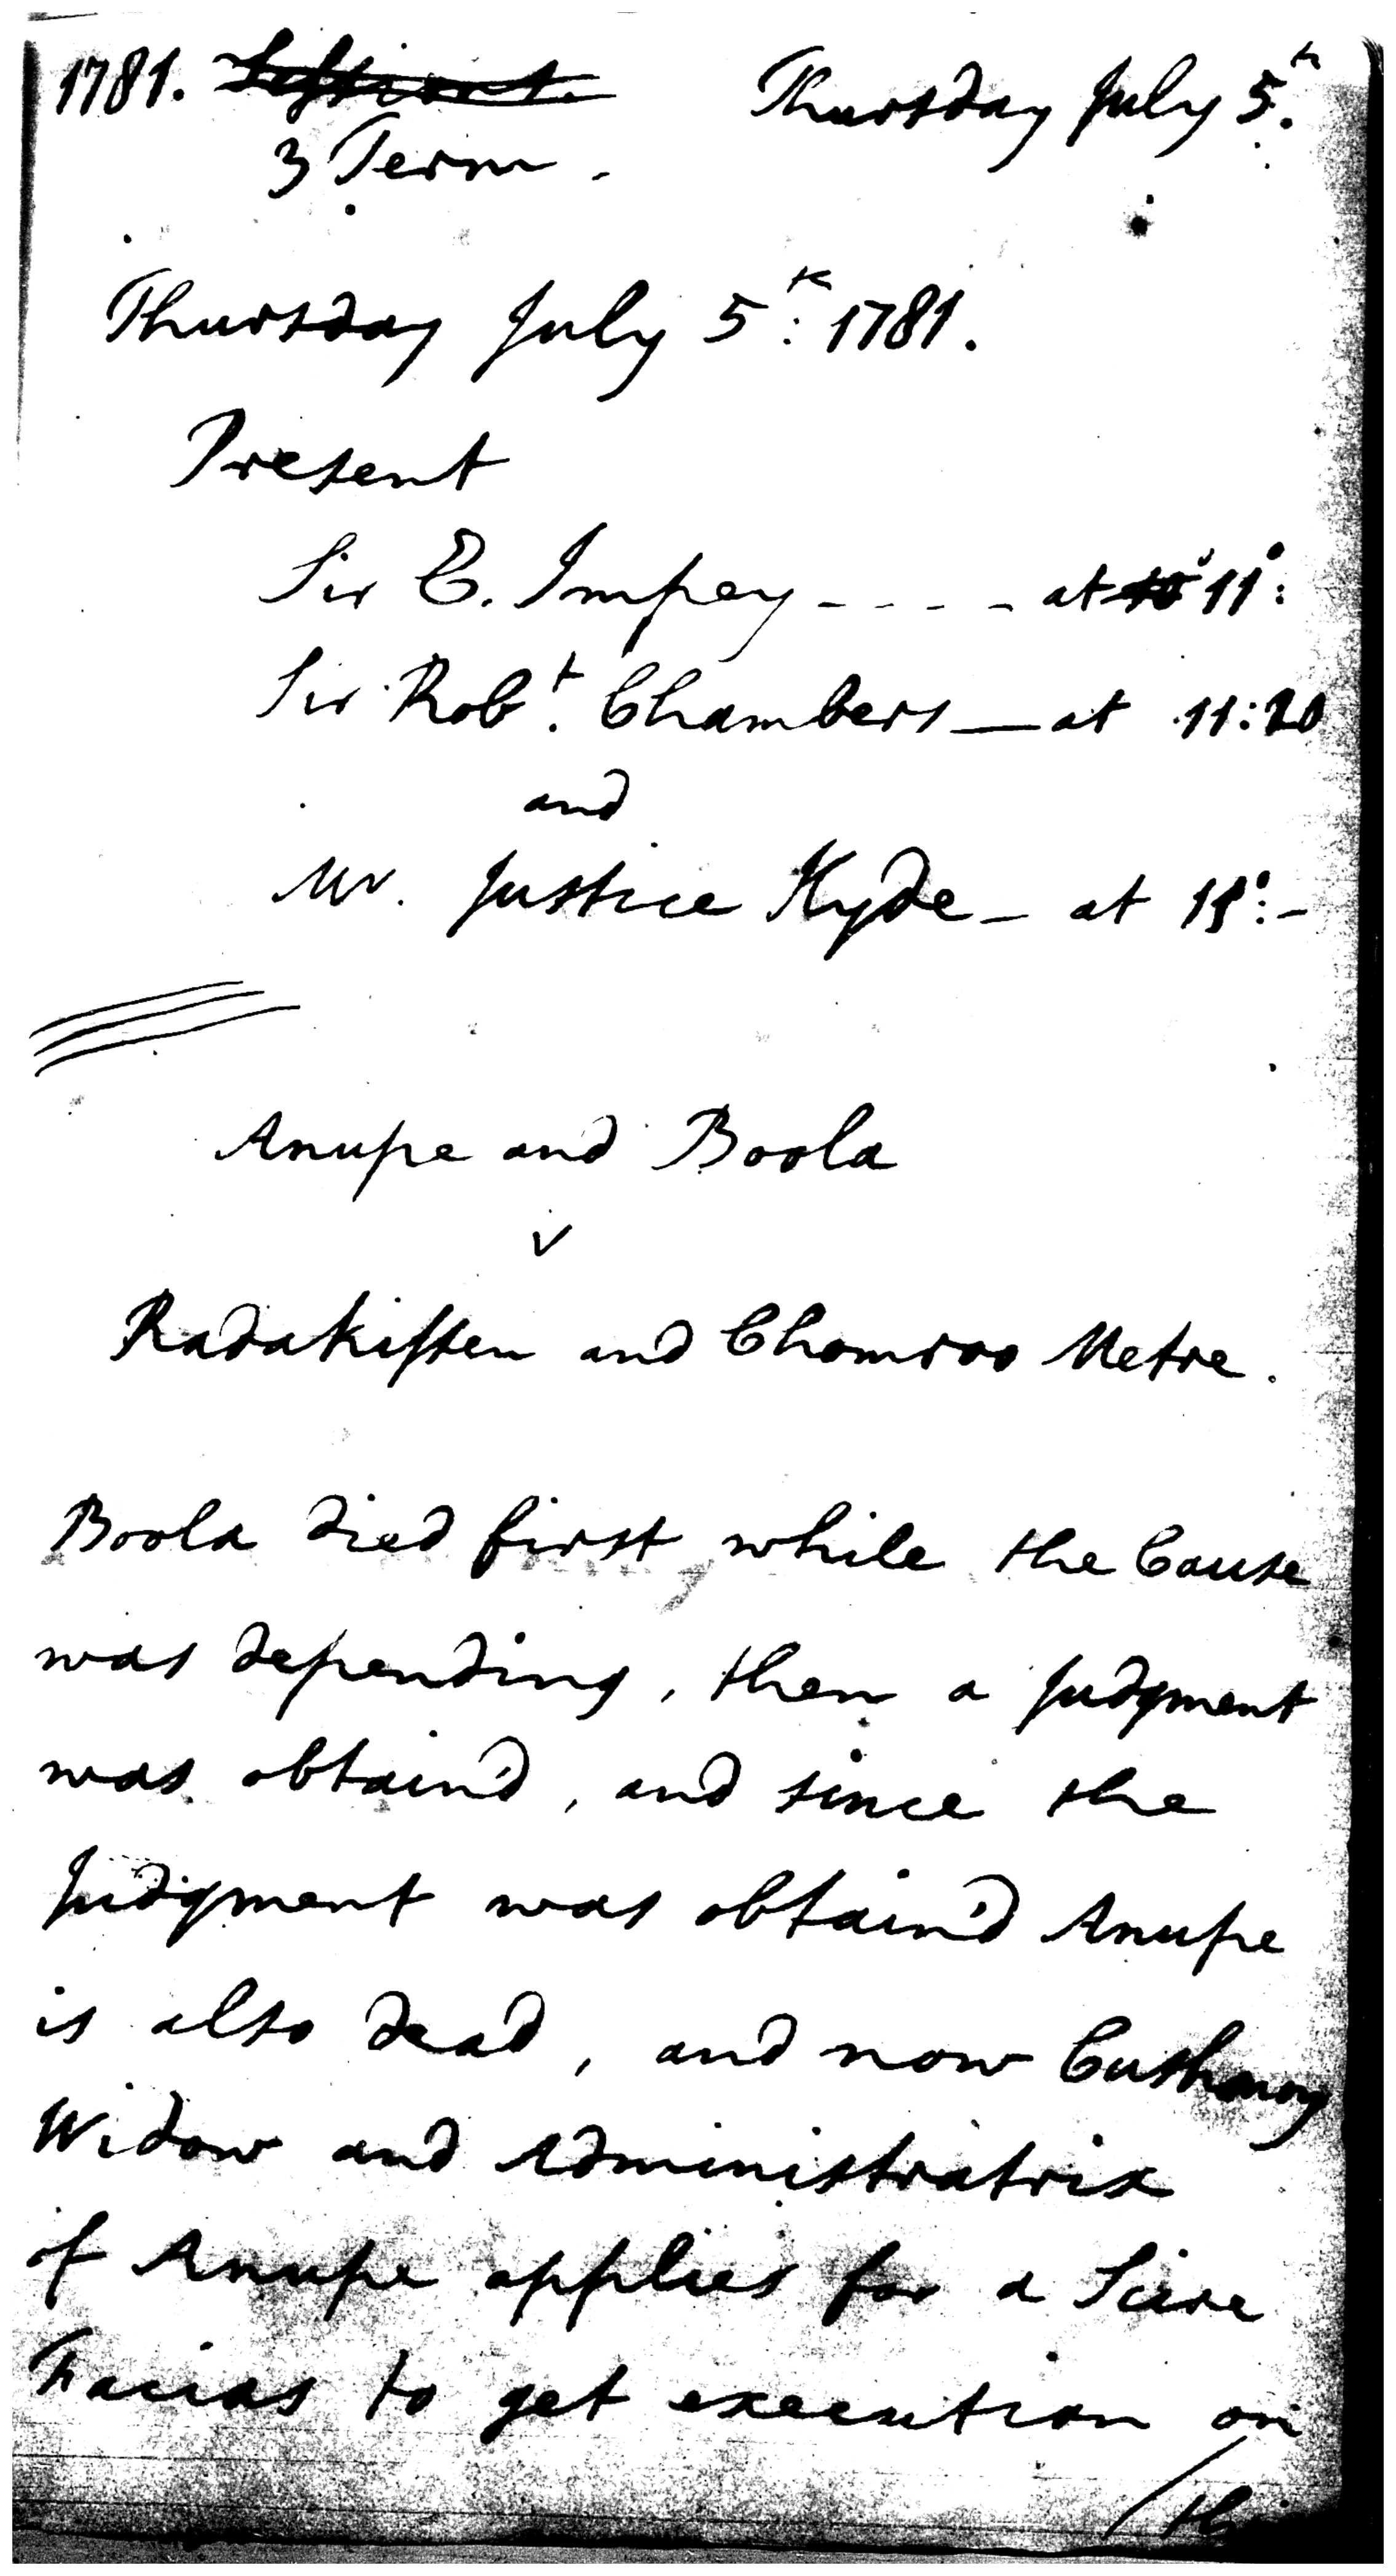 1781. Thursday July 5th.
3 Term.
Thursday July 5th: 1781.
Present
Sir E. Impey - - - - at 11:
Sir Robt. Chambers — at 11:20
and
Mr. Justice Hyde - at 11: -
Anupe and Boola
v
Radakissen and Chomroo Metre.
Boola died first while the Cause
was depending, then a Judgment
was obtain'd, and since the
Judgment was obtain'd Anupe
is also dead, and now
Widow and Administratrix
of Anupe applies for a Scire
Facias to get execution on